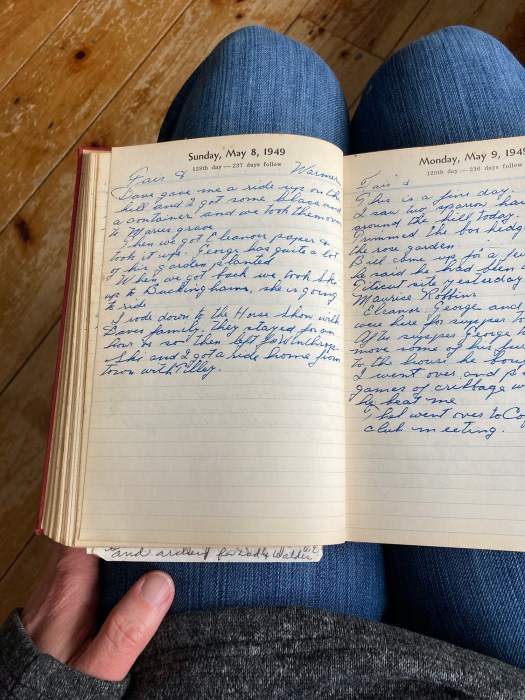 Sunday, May 8, 1949
128th day — 237 days follow
Fair & Warmer
Dave gave me a ride up on the
hill and I got some lilacs and
a container and we took them over
to Maries grave
Then we got Eleanor paper &
took it up. George has quite a lot
of his garden planted
When we got back we took Ski
up to Buckinghams, she is going
to ride
I rode down to the Horse Show with
Daves family. they stayed for an
hour & so then left for Winthrop
Ski and I got a ride home from
town with
Monday, May 9, 1949
129th day — 236 days follow
Fair &
This is a fine day.
I saw two sparow haw
around the hill today.
Trimmed the box hedg
the rose garden
Bill came up for a few
he said he had been
Titicut site yesterday
Maurice Robbins
Eleanor, George and
were here for supper to
After supper George h
move some of his fur
to the house he boug
I went over and p
games of cribbage w
he beat me
went over to Co
club meeting.
and for Dad & Walder